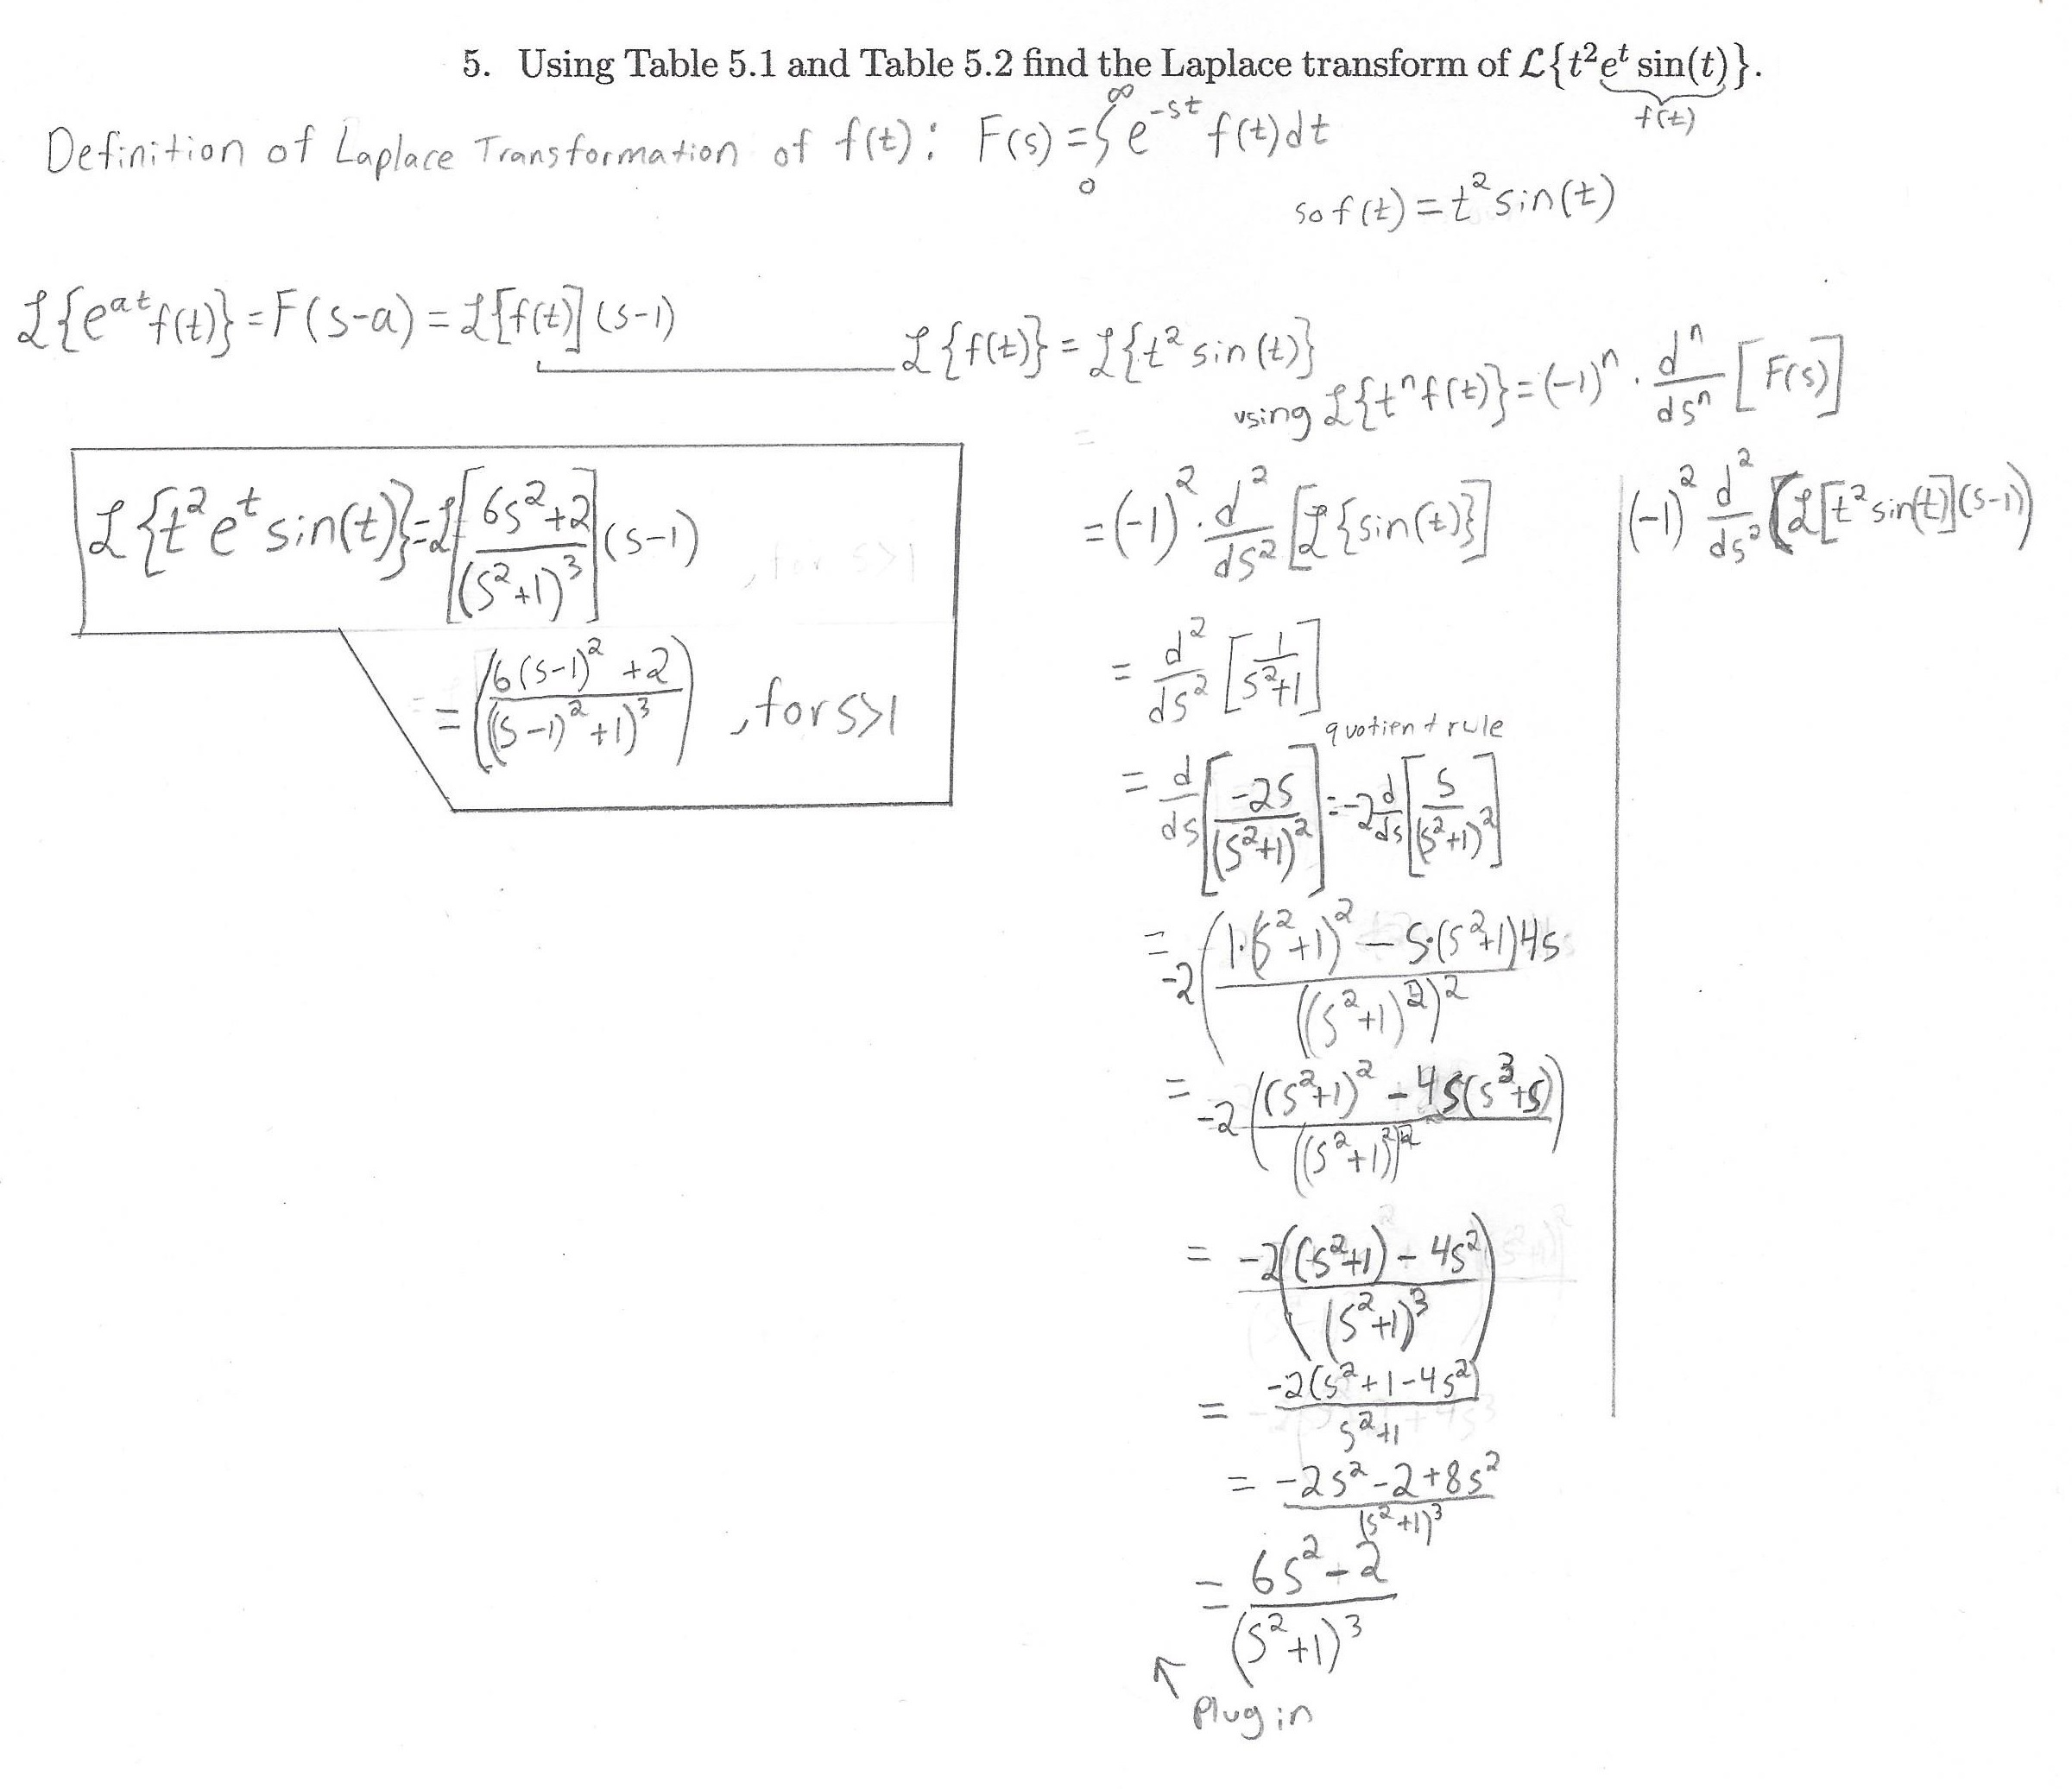 5. Using Table 5.1 and Table 5.2 find the Laplace transform of ℒ{t²eᵗ sin(t)}.
f(t)
Definition of Laplace Transformation of f(t): F(s) = ∫₀^∞ e^(-st) f(t)dt
so f(t) = t² sin(t)
ℒ{e^(at) f(t)} = F(s-a) = ℒ[f(t)](s-1)
ℒ{f(t)} = ℒ{t² sin(t)}
using ℒ{tⁿf(t)} = (-1)ⁿ · dⁿ/dsⁿ [F(s)]
ℒ{t²eᵗ sin(t)} = ℒ[(6s²+2)/(s²+1)³](s-1)
= ((6(s-1)²+2)/((s-1)²+1)³), for s>1
= (-1)² · d²/ds² [ℒ{sin(t)}]
(-1)² d²/ds² (ℒ[t² sin(t)](s-1))
= d²/ds² [1/(s²+1)]
quotient rule
= d/ds [-2s/(s²+1)²] = -2 d/ds [s/(s²+1)²]
= -2((1·(s²+1)² - s·(s²+1)4s)/((s²+1)²)²
= -2(((s²+1)² - 4s(s³+s))/((s²+1)²)²)
= -2((s²+1) - 4s²)/(s²+1)³
= -2(s²+1-4s²)/s²+1
= -2s²-2+8s²/(s²+1)³
= 6s²-2/(s²+1)³
↑
Plug in